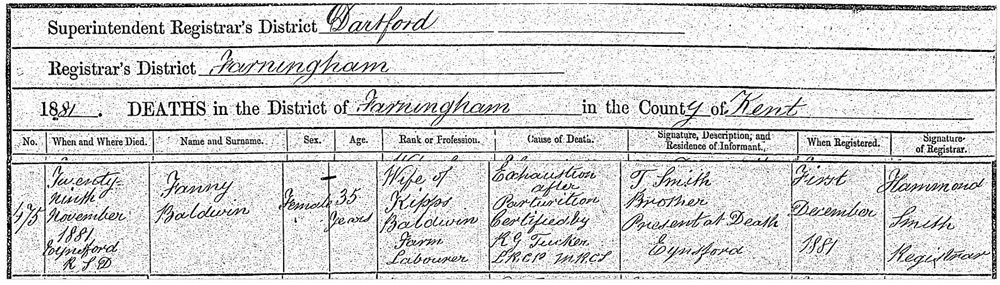 Superintendent Registrar's District Dartford
Registrar's District Farningham
1881. DEATHS in the District of Farningham in the County of Kent
No. When and Where Died. Name and Surname. Sex. Age. Rank or Profession. Cause of Death. Signature, Description, and Residence of Informant. When Registered. Signature of Registrar.
475
Twenty-
Ninth
November
1881
Eynsford
R S D
Fanny
Baldwin
Female
35
years
Wife of
Kipps
Baldwin
Farm
Labourer
Exhaustion
after
Parturition
Certified by
R G Tucker
LRCP MRCS
T. Smith
Brother
Present at Death
Eynsford
First
December
1881
Hammond
Smith
Registrar